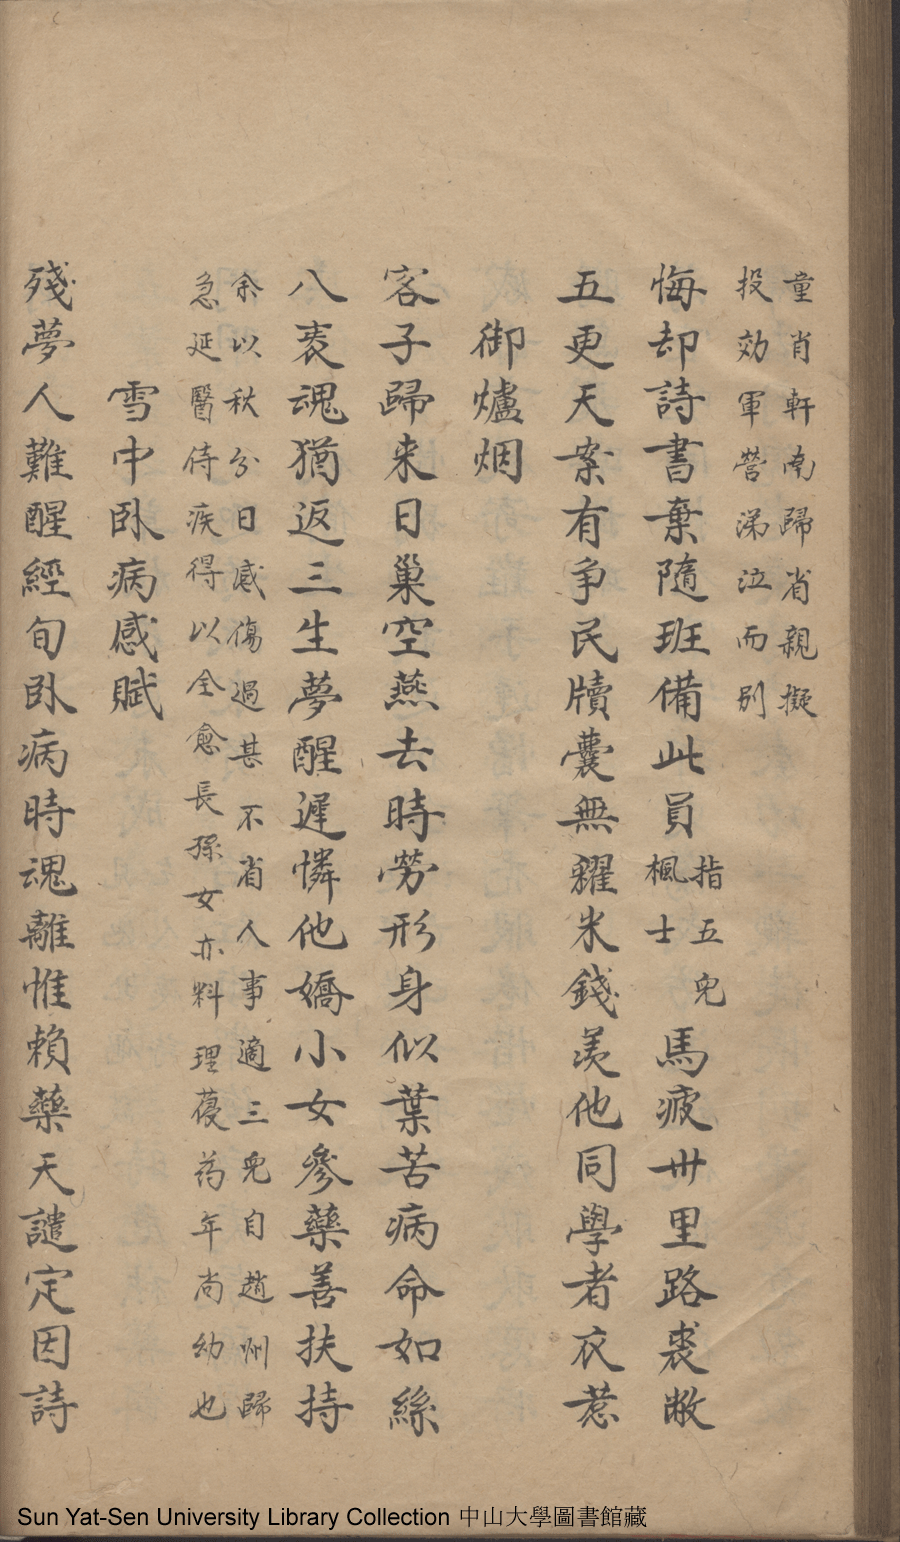 童肖軒南歸省親擬
投効軍營涕泣而別
悔却詩書棄隨班備此員指五兒楓士馬疲卅里路裘敝
五更天案有爭民牘囊無糴米錢羨他同學者衣惹
御爐烟
客子歸来日巢空燕去時勞形身似葉苦病命如絲
八袠魂猶返三生夢醒遲憐他嬌小女參藥善扶持
余以秋分日感傷過甚不省人事適三兒自趙州歸
急延醫侍疾得以全愈長孫女亦料理葠药年尚幼也
雪中卧病感賦
殘夢人難醒經旬卧病時魂離惟賴藥天譴定因詩
Sun Yat-Sen University Library Collection 中山大學圖書館藏